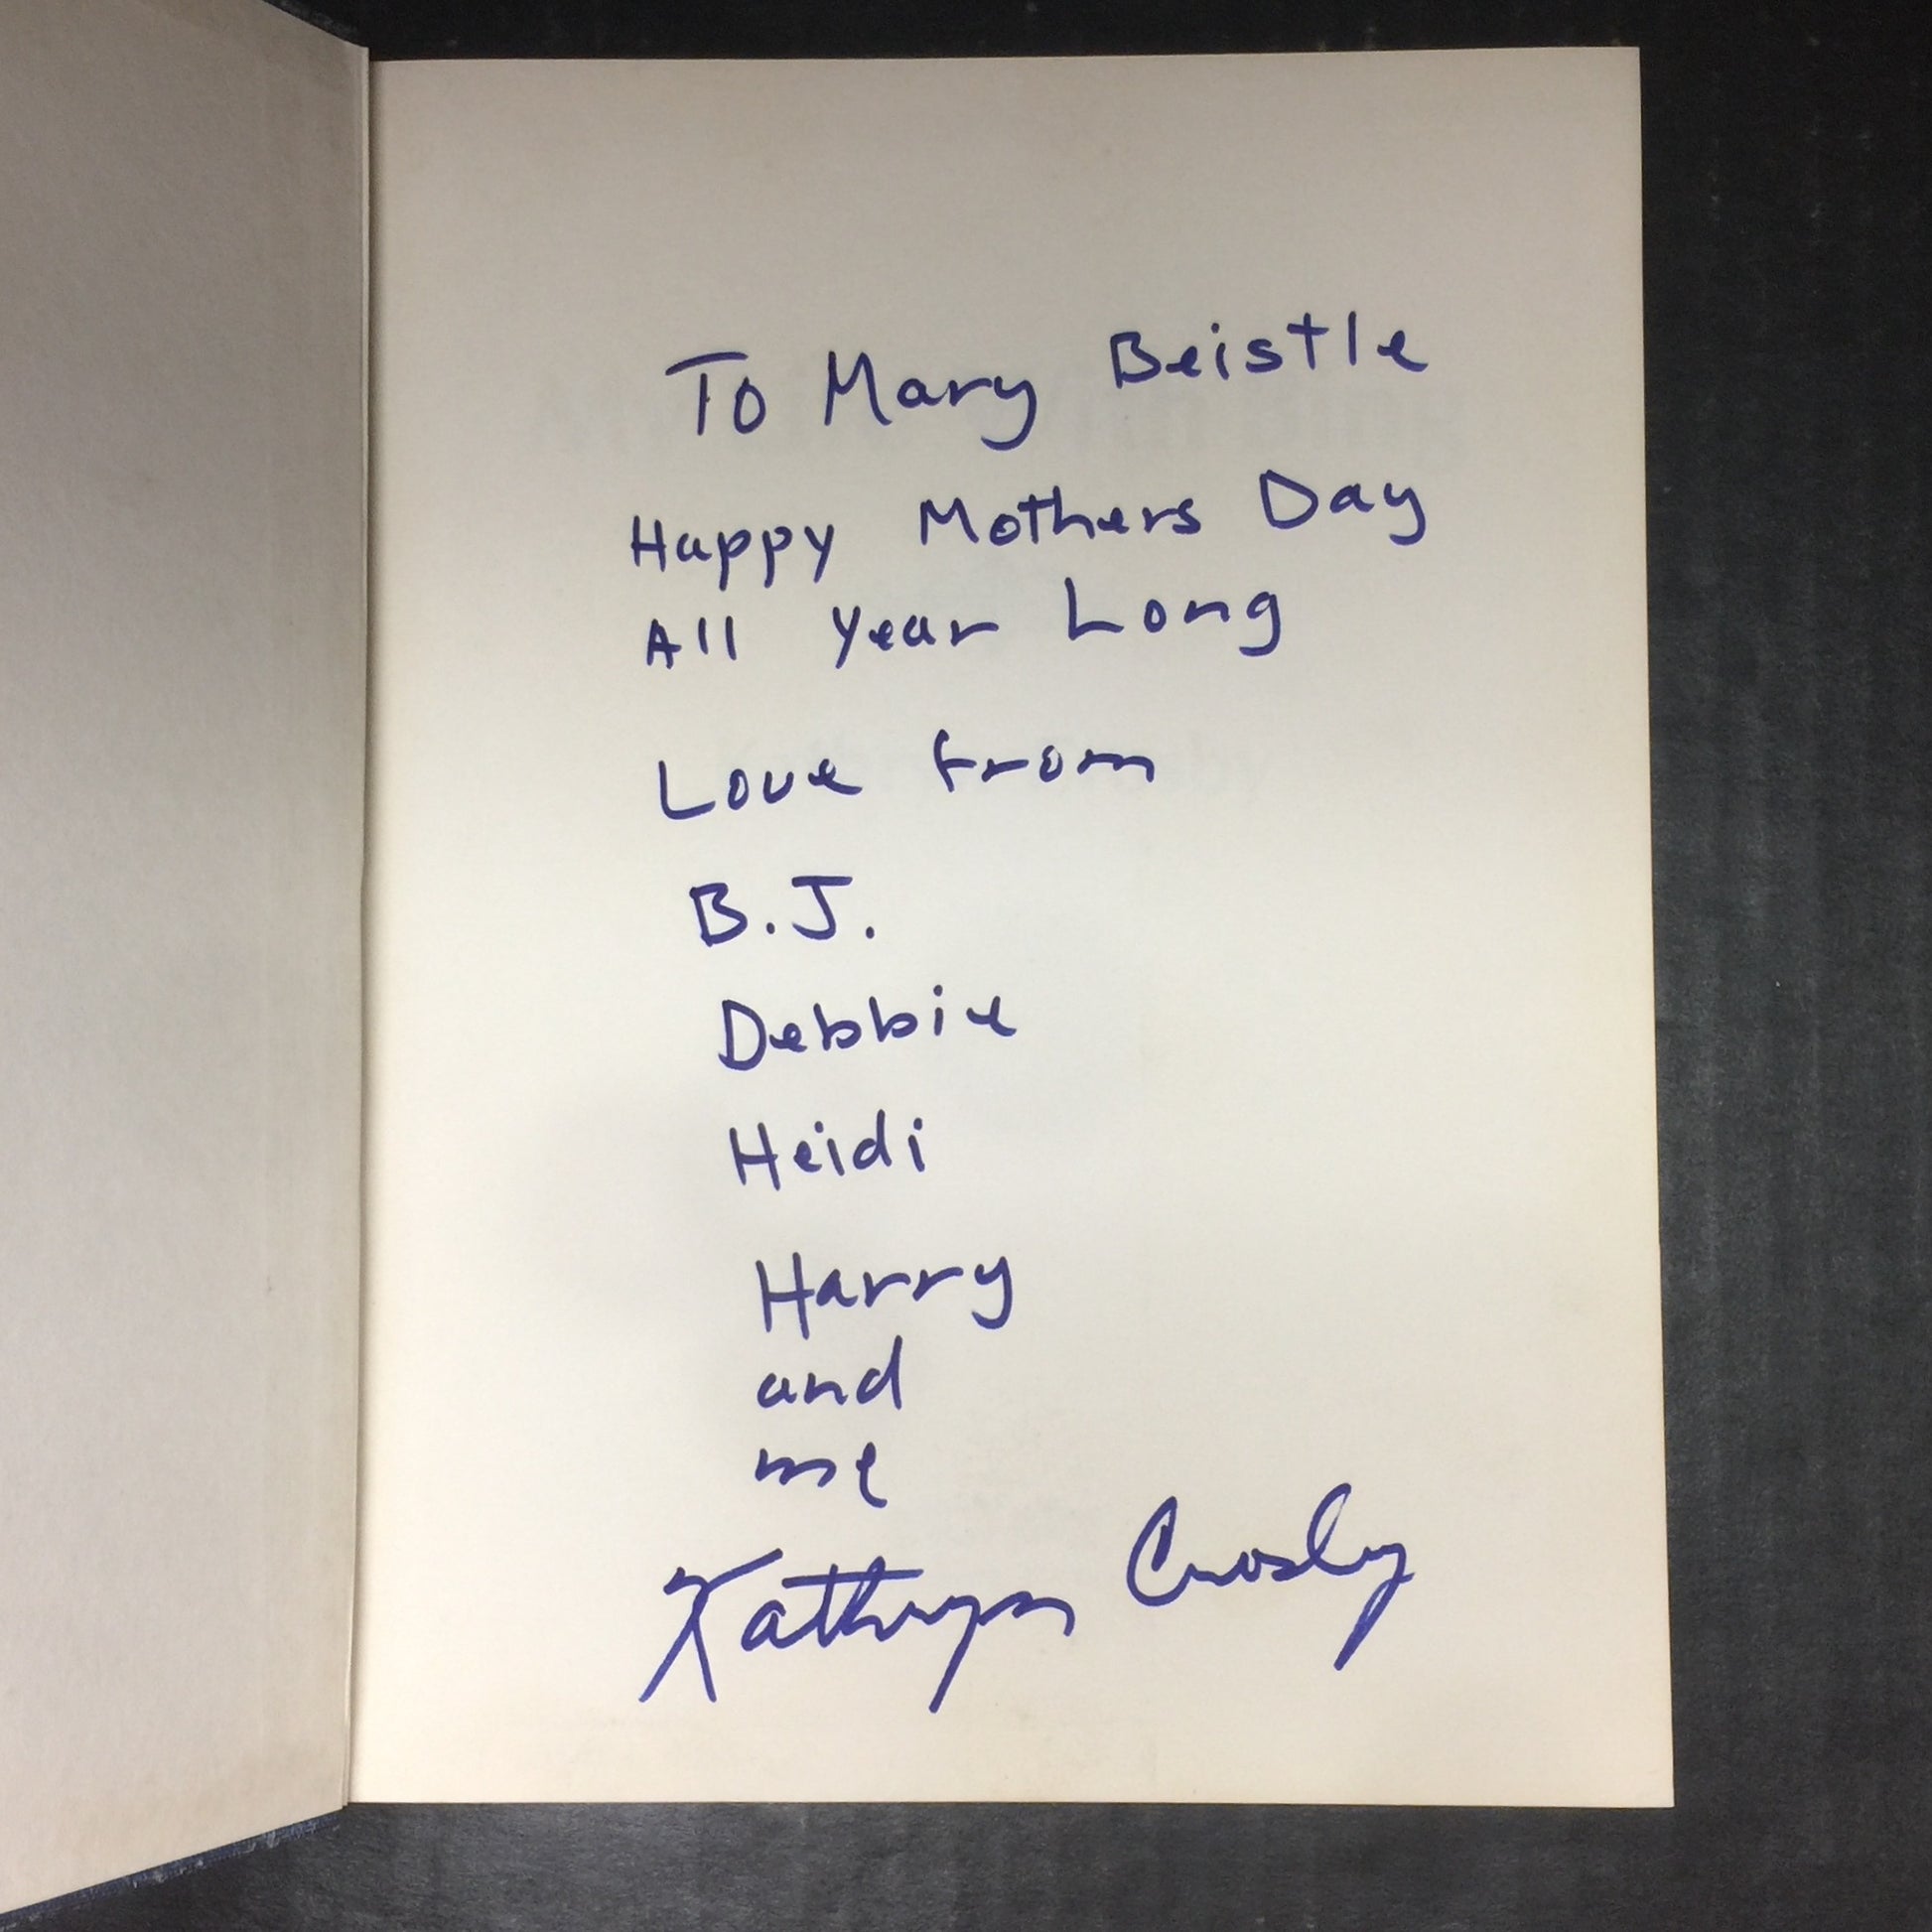 To Mary Beistle
Happy Mothers Day
All Year Long
Love from
B.J.
Debbie
Heidi
Harry
and
me
Kathryn Crosby